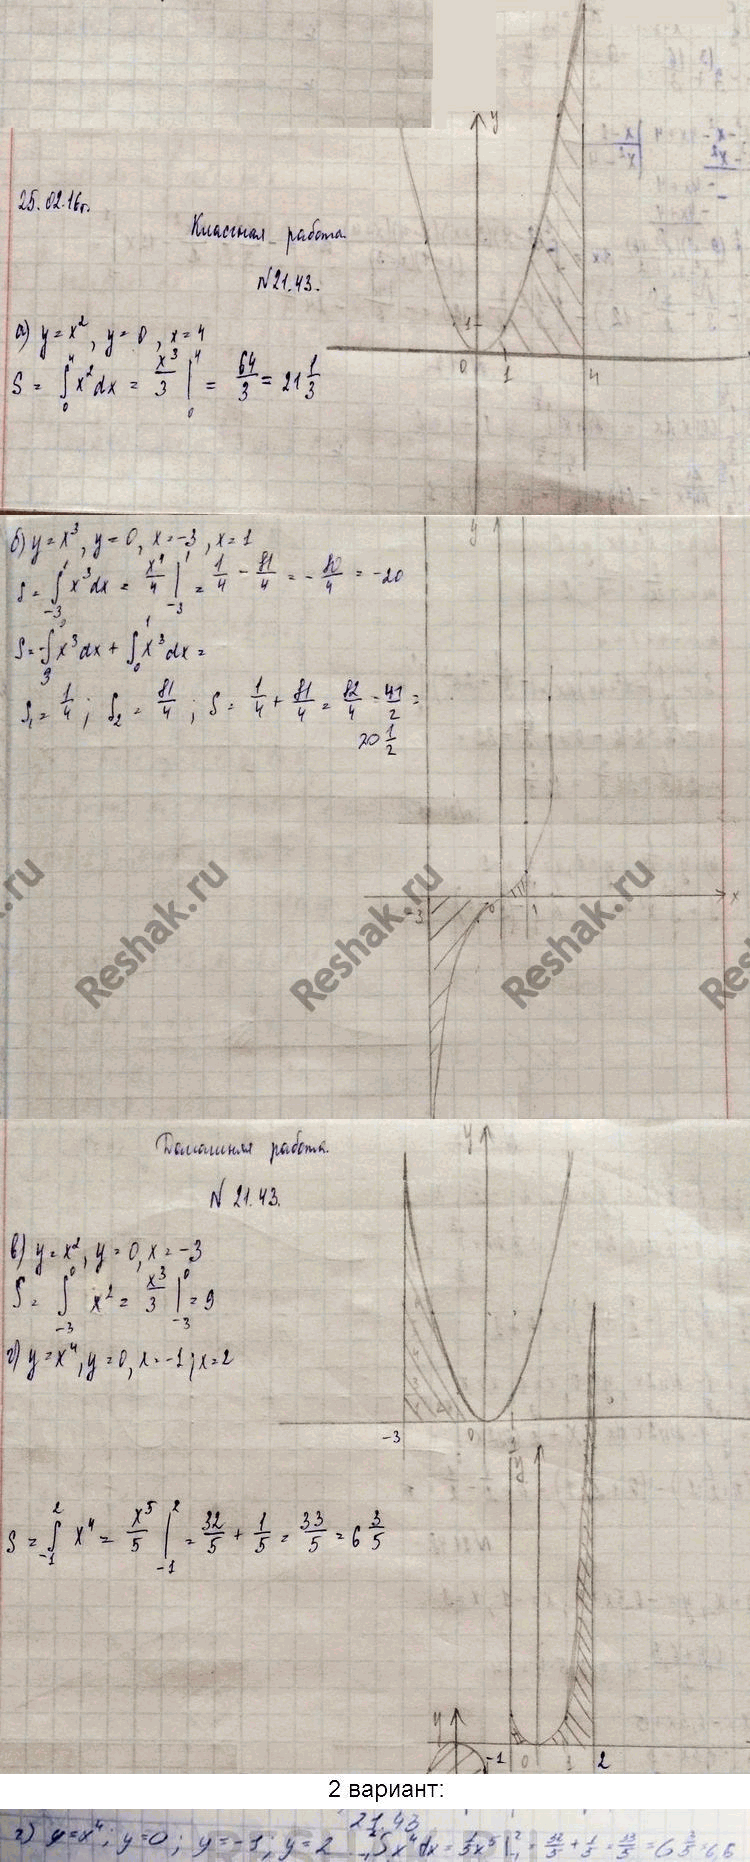 25.02.16г.
Классная работа.
N21.43.
а) y=x², y=0, x=4
S = ∫₀⁴ x²dx = x³/3 |₀⁴ = 64/3 = 21 1/3
y
1
0 1 4
б) y=x³, y=0, x=-3, x=1
S = ∫₋₃¹ x³dx = x⁴/4 |₋₃¹ = 1/4 - 81/4 = -80/4 = -20
S₁ = 1/4; S₂ = 81/4; S = 1/4 + 81/4 = 82/4 - 41/2 =
20 1/2
y
-3 0 1 x
Reshak.ru
Reshak.ru
Reshak.ru
Домашняя работа.
N 21.43.
в) y=x², y=0, x=-3
S = ∫₋₃⁰ x² = x³/3 |₋₃⁰ = 9
y
-3 0 1
г) y=x⁴, y=0, x=-1; x=2
S = ∫₋₁² x⁴ = x⁵/5 |₋₁² = 32/5 + 1/5 = 33/5 = 6 3/5
y
y
-1 0 1 2
2 вариант:
21.43
г) y=x⁴; y=0; y=-1; y=2 ₋₁²∫x⁴dx = 1/5x⁵|₋₁² = 32/5 + 1/5 = 33/5 = 6 3/5 = 6,6